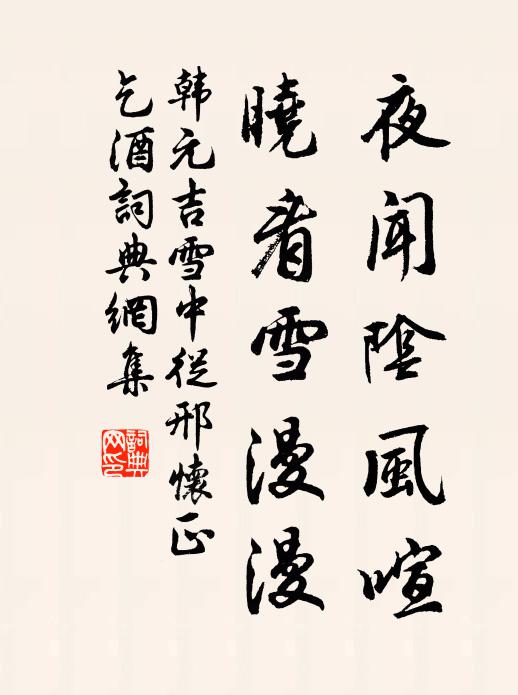 夜聞陰風喧
曉看雪漫漫
韓元吉雪中從邢懷正
乞酒詞典網集
詞典网印